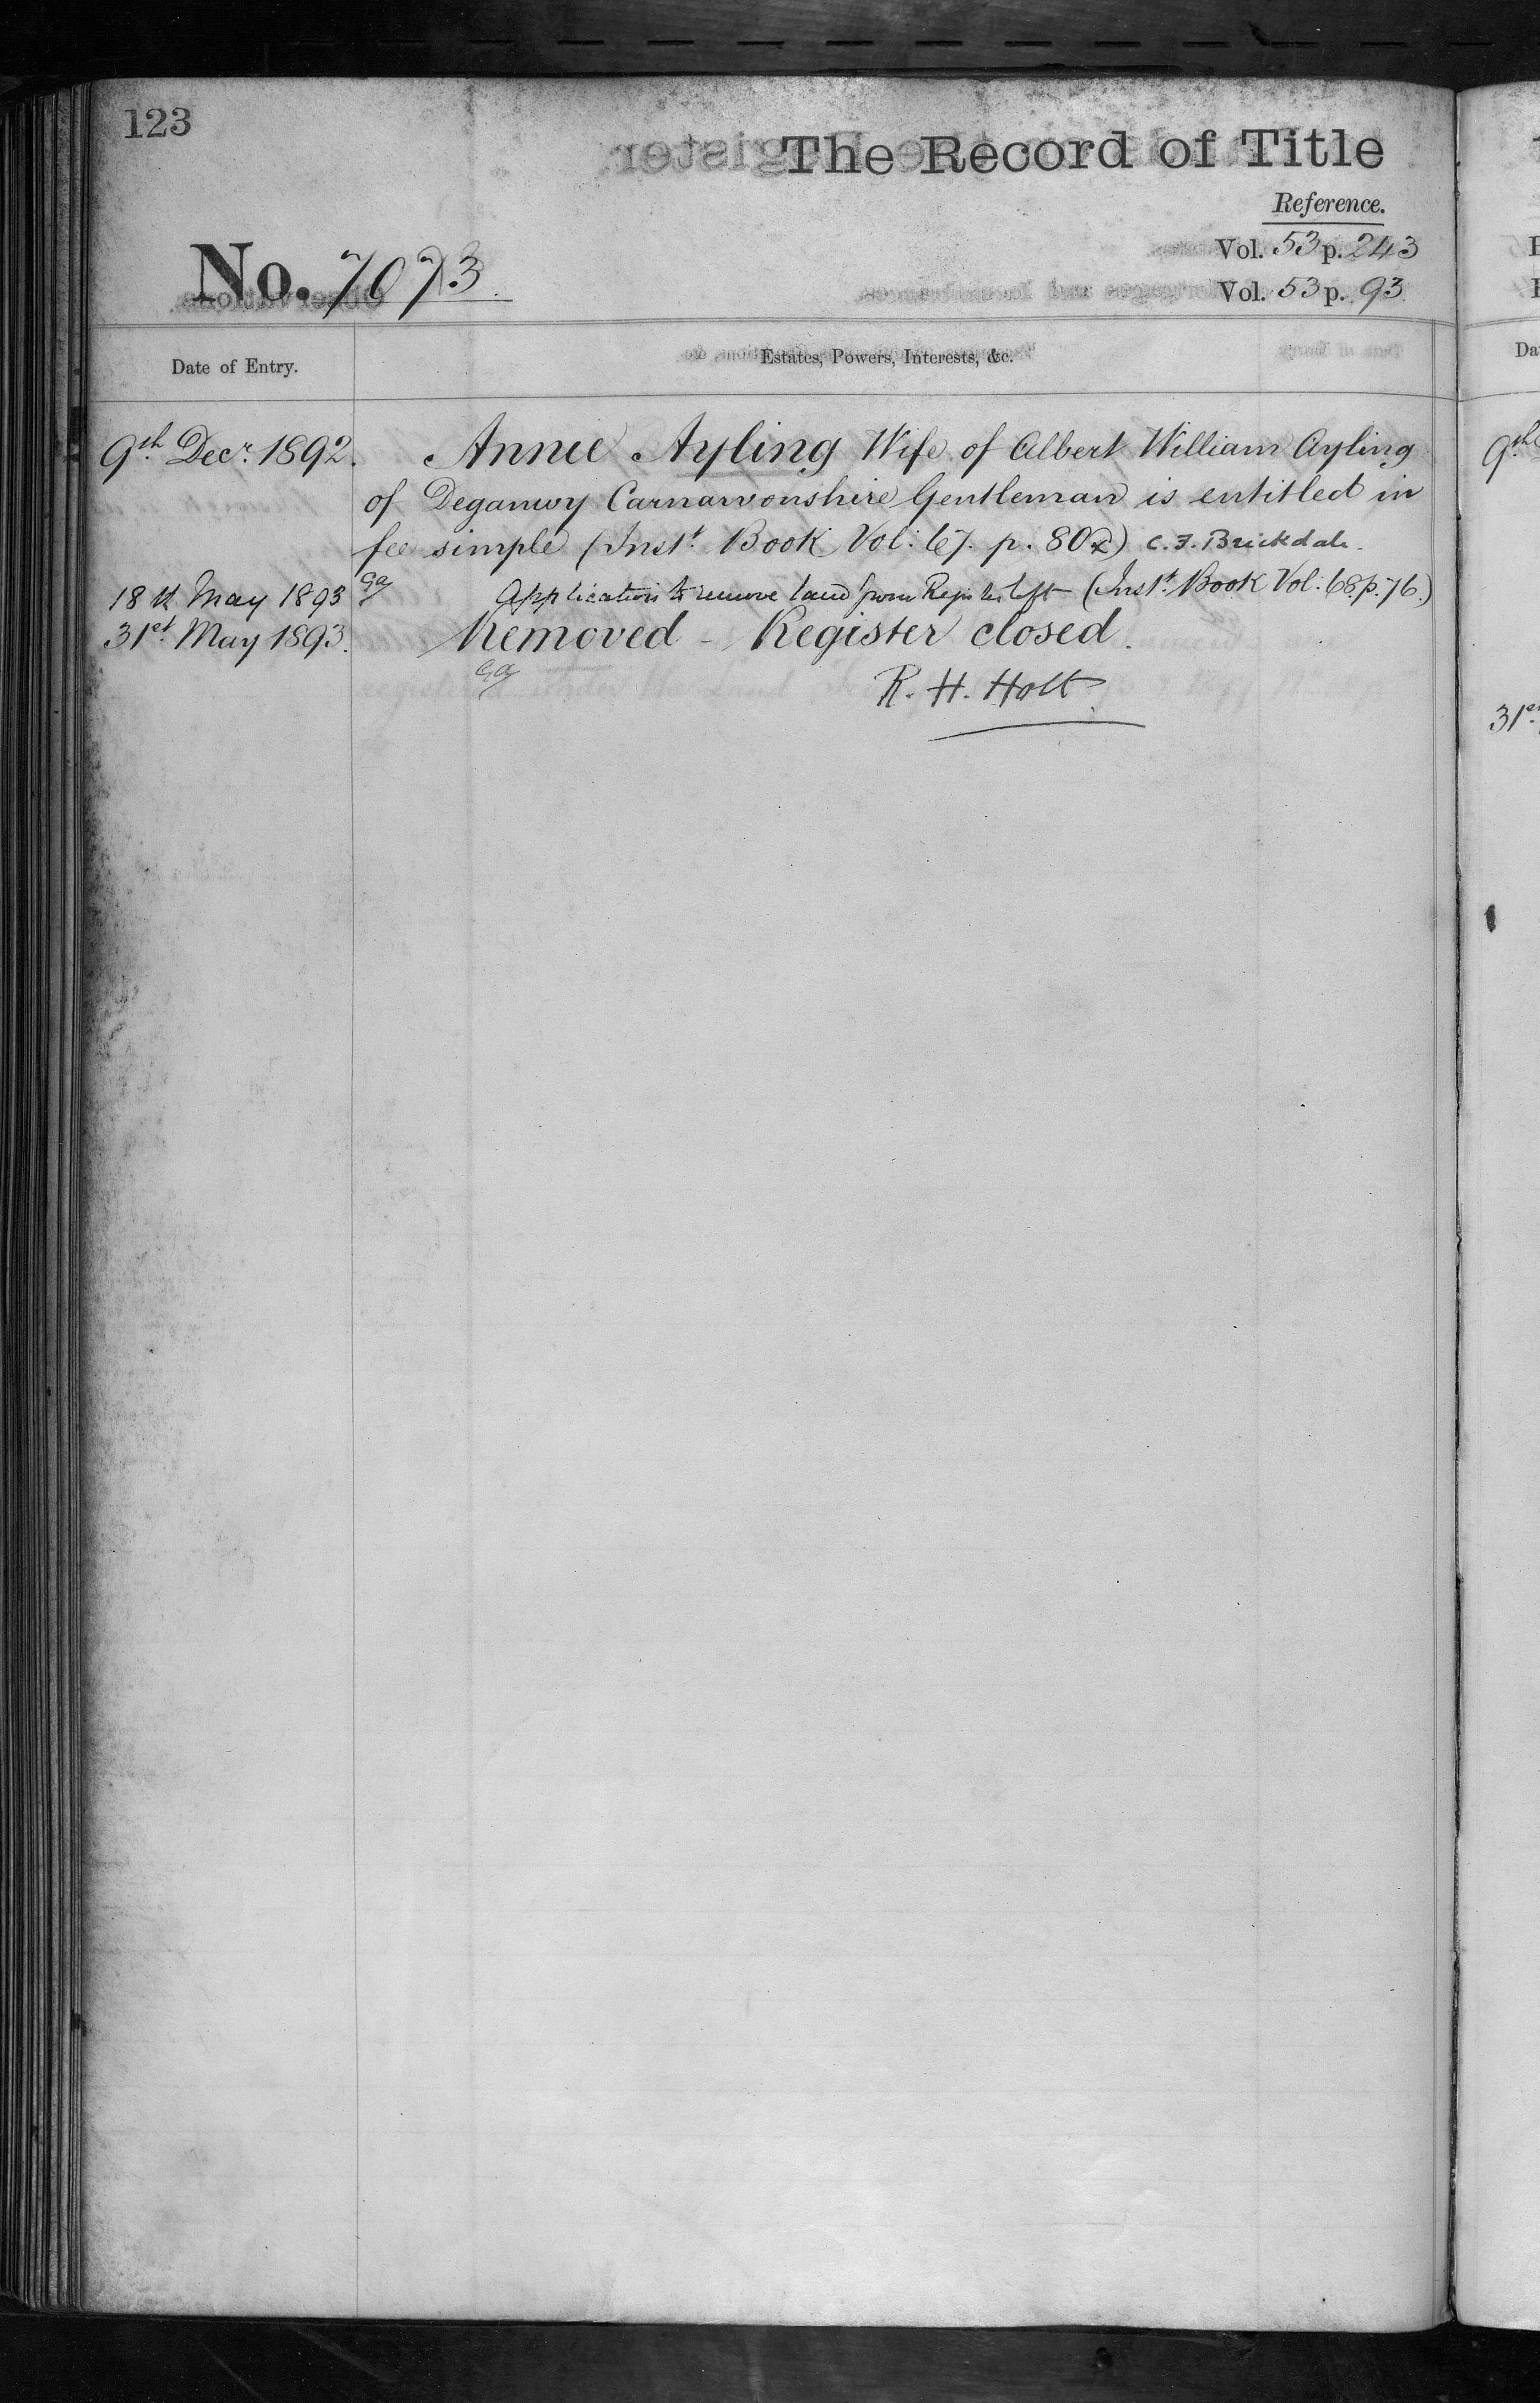 123
The Record of Title
Reference.
Vol. 53 p. 243
No. 7073
Vol. 53 p. 93
Date of Entry.
Estates, Powers, Interests, &c.
9th Decr. 1892. Annie Ayling Wife of Albert William Ayling
of Deganwy Carnarvonshire Gentleman is entitled in
fee simple (Inst. Book Vol. 67. p. 80) C. F. Brickdale.
18th May 1893 Application to remove land from Register left (Inst. Book Vol. 68. p. 76.)
31st May 1893. Removed - Register closed.
R. H. Holt.
9th
31st